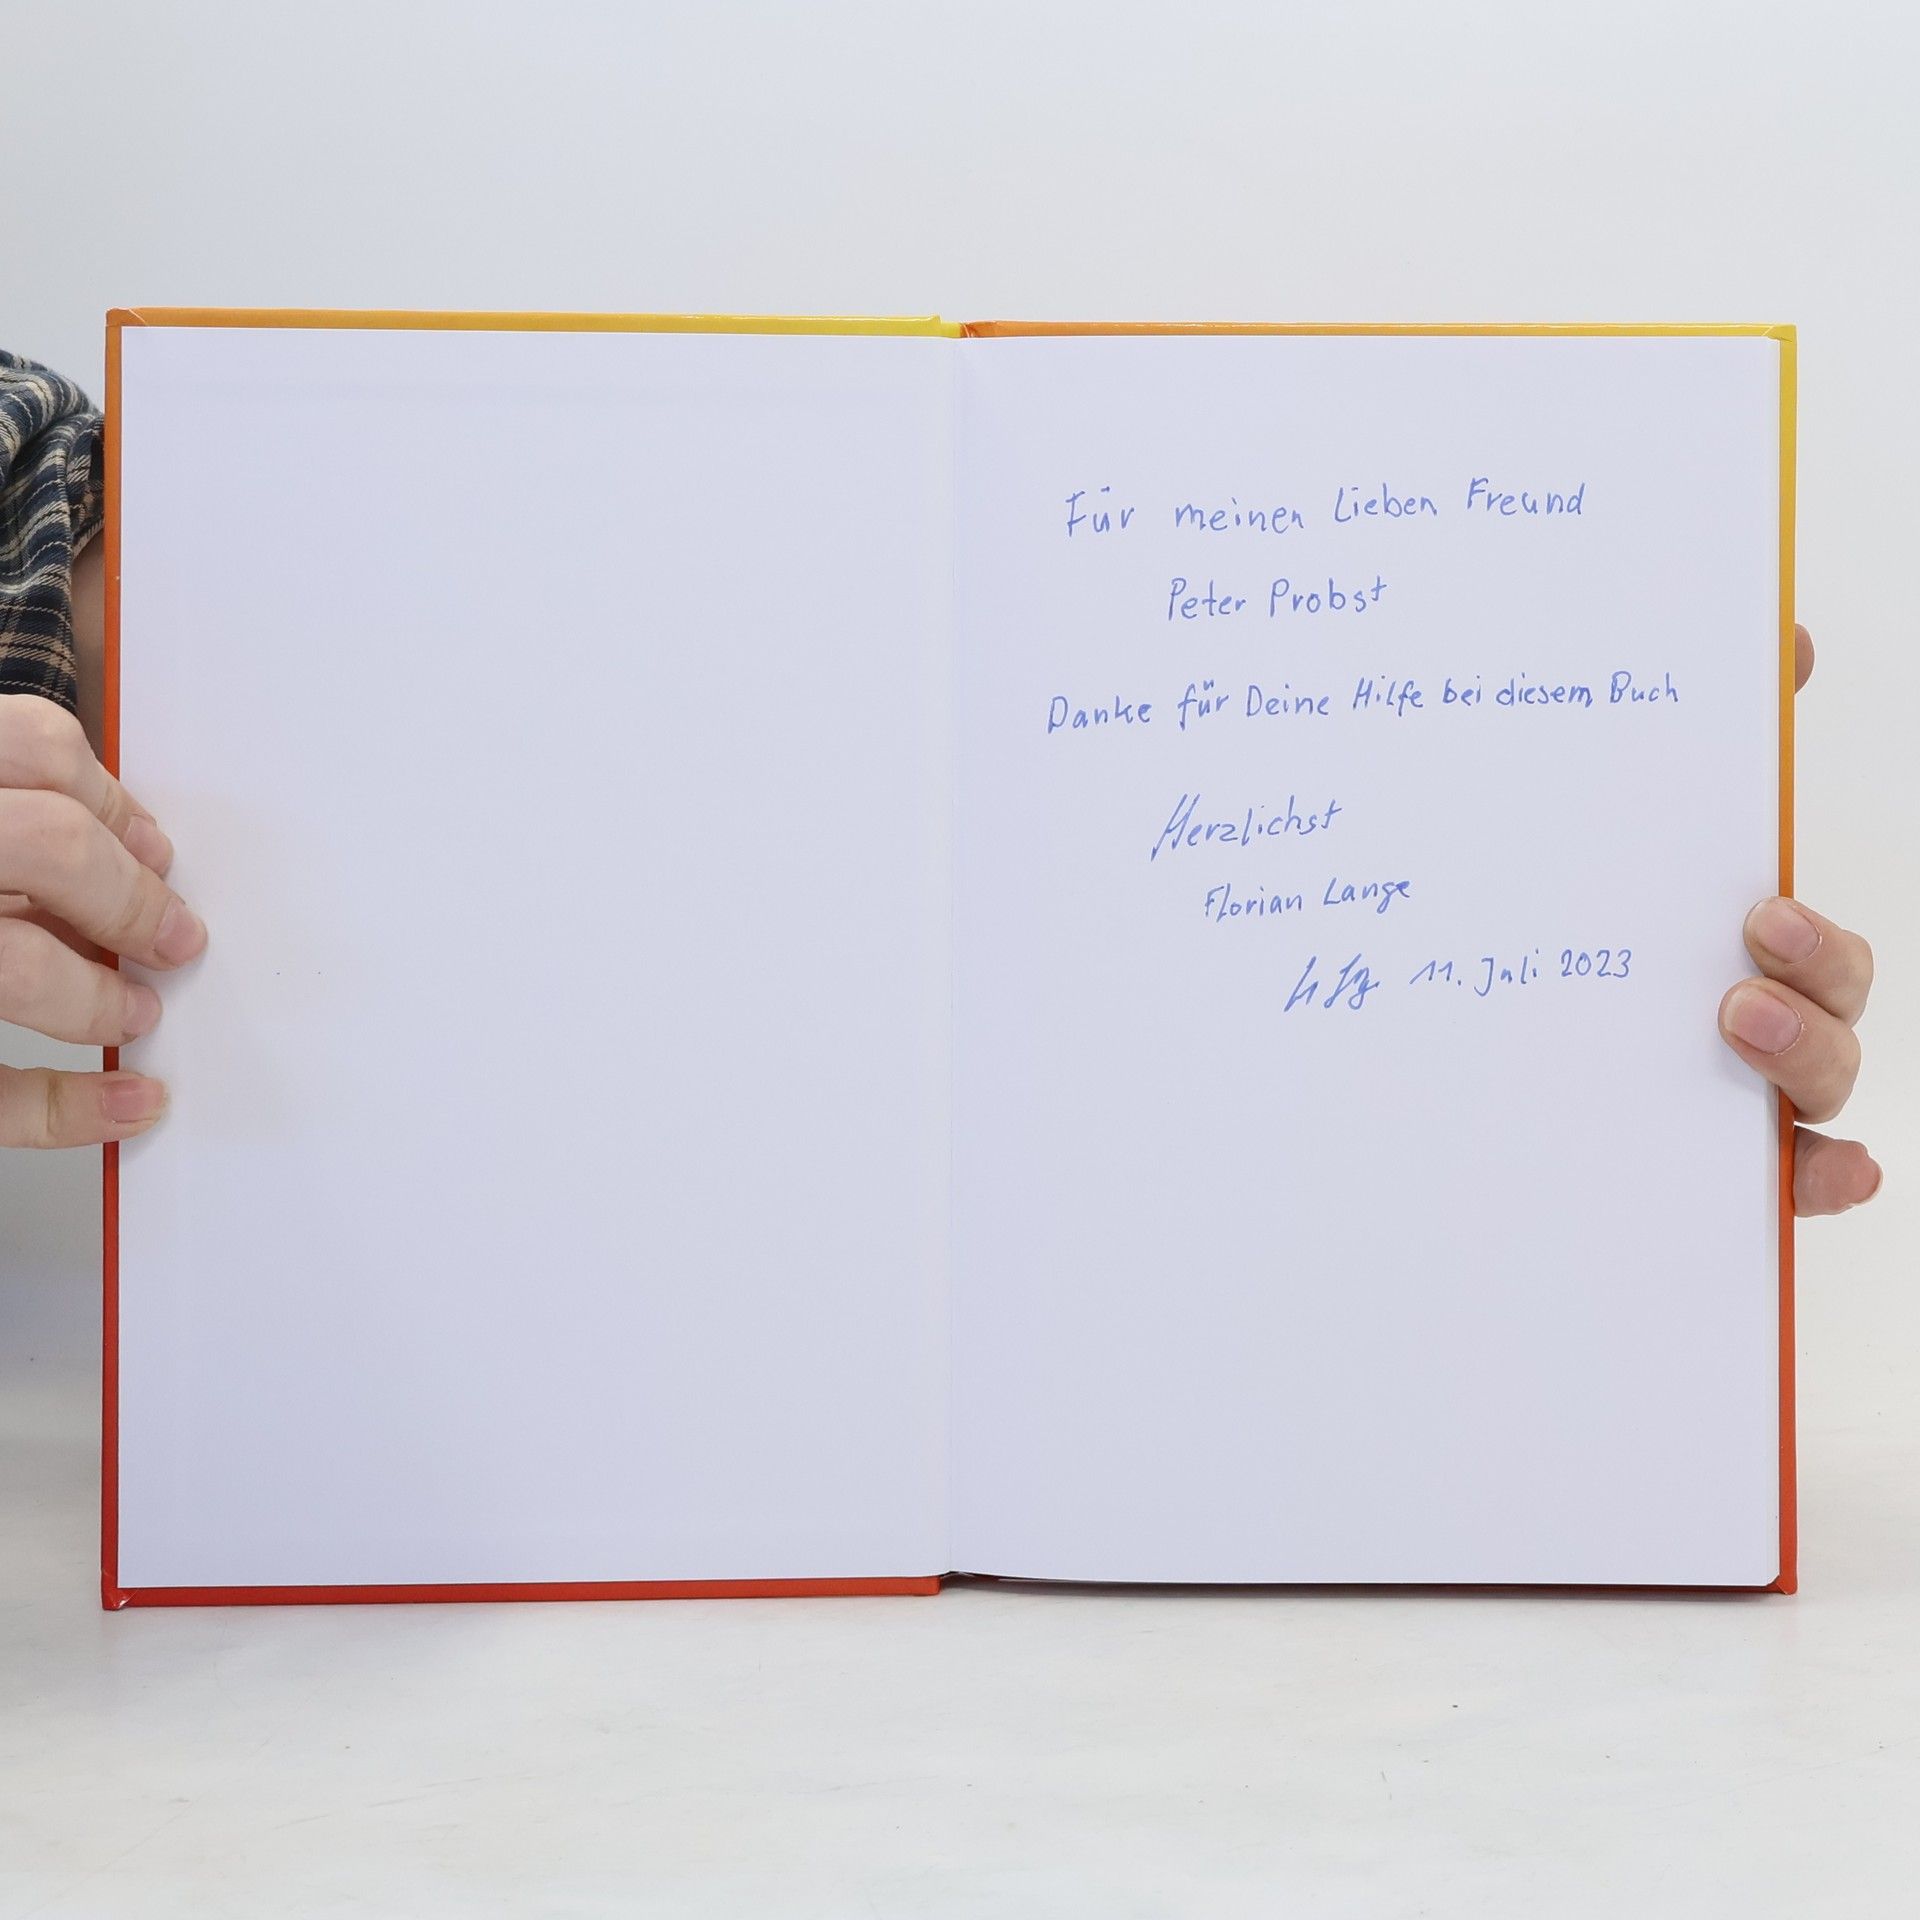 Für meinen lieben Freund
Peter Probst
Danke für Deine Hilfe bei diesem Buch
Herzlichst
Florian Lange
11. Juli 2023